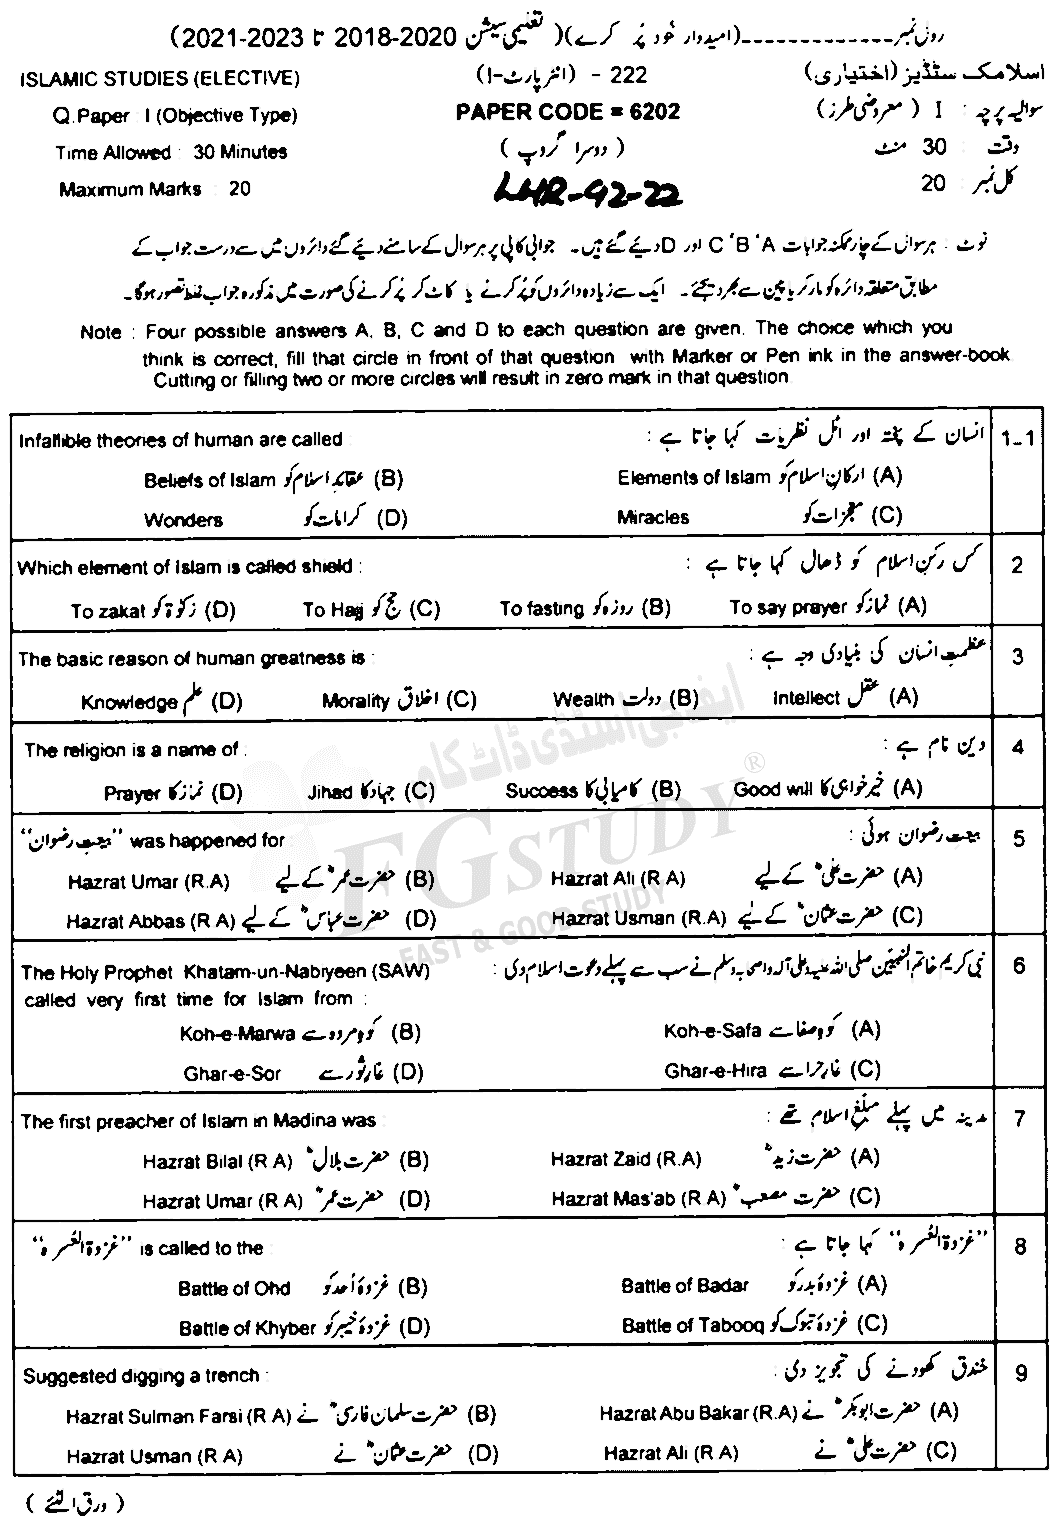 رول نمبر ـ ـ ـ ـ ـ ـ ـ ـ ـ ـ ـ ـ ـ (امیدوار خود پر کرے) ( تعلیمی سیشن 2020-2018 تا 2023-2021)
ISLAMIC STUDIES (ELECTIVE) 222 - (انٹر پارٹ-I) اسلامک سٹڈیز (اختیاری)
Q.Paper : I (Objective Type) PAPER CODE = 6202 سوالیہ پرچہ : I ( معروضی طرز)
Time Allowed : 30 Minutes ( دوسرا گروپ ) وقت : 30 منٹ
Maximum Marks : 20 LHR-G2-22 کل نمبر : 20
نوٹ : ہر سوال کے چار ممکنہ جوابات A ، B ، C اور D دیئے گئے ہیں۔ جوابی کاپی پر ہر سوال کے سامنے دیئے گئے دائروں میں سے درست جواب کے
مطابق متعلقہ دائرہ کو مارکر یا پین سے بھر دیجئے۔ ایک سے زیادہ دائروں کو پُر کرنے یا کاٹ کر پُر کرنے کی صورت میں مذکورہ جواب غلط تصور ہوگا۔
Note : Four possible answers A, B, C and D to each question are given. The choice which you
think is correct, fill that circle in front of that question with Marker or Pen ink in the answer-book
Cutting or filling two or more circles will result in zero mark in that question
Infallible theories of human are called : انسان کے پختہ اور اٹل نظریات کہا جاتا ہے : 1-1
Beliefs of Islam عقائدِ اسلام کو (B) Elements of Islam ارکانِ اسلام کو (A)
Wonders کرامات کو (D) Miracles معجزات کو (C)
Which element of Islam is called shield : کس رکنِ اسلام کو ڈھال کہا جاتا ہے : 2
To zakat زکوٰۃ کو (D) To Hajj حج کو (C) To fasting روزہ کو (B) To say prayer نماز کو (A)
The basic reason of human greatness is : عظمتِ انسان کی بنیادی وجہ ہے : 3
Knowledge علم (D) Morality اخلاق (C) Wealth دولت (B) Intellect عقل (A)
The religion is a name of : دین نام ہے : 4
Prayer نماز کا (D) Jihad جہاد کا (C) Success کامیابی کا (B) Good will خیر خواہی کا (A)
"بیعتِ رضوان" was happened for بیعت رضوان ہوئی : 5
Hazrat Umar (R.A) حضرت عمرؓ کے لیے (B) Hazrat Ali (R A) حضرت علیؓ کے لیے (A)
Hazrat Abbas (R A) حضرت عباسؓ کے لیے (D) Hazrat Usman (R.A) حضرت عثمانؓ کے لیے (C)
The Holy Prophet Khatam-un-Nabiyeen (SAW) نبی کریم خاتم النبیین صلی اللہ علیہ وعلی آلہ واصحابہ وسلم نے سب سے پہلے دعوت اسلام دی : 6
called very first time for Islam from :
Koh-e-Marwa کوہِ مروہ سے (B) Koh-e-Safa کوہِ صفا سے (A)
Ghar-e-Sor غارِ ثور سے (D) Ghar-e-Hira غارِ حرا سے (C)
The first preacher of Islam in Madina was : مدینہ میں پہلے مبلغِ اسلام تھے : 7
Hazrat Bilal (R A) حضرت بلالؓ (B) Hazrat Zaid (R.A) حضرت زیدؓ (A)
Hazrat Umar (R A) حضرت عمرؓ (D) Hazrat Mas'ab (R A) حضرت مصعبؓ (C)
"غزوۃ العُسرہ" is called to the "غزوۃ العُسرہ" کہا جاتا ہے : 8
Battle of Ohd غزوۂ اُحد کو (B) Battle of Badar غزوۂ بدر کو (A)
Battle of Khyber غزوۂ خیبر کو (D) Battle of Tabooq غزوۂ تبوک کو (C)
Suggested digging a trench : خندق کھودنے کی تجویز دی : 9
Hazrat Sulman Farsi (R A) حضرت سلمان فارسیؓ نے (B) Hazrat Abu Bakar (R.A) حضرت ابوبکرؓ نے (A)
Hazrat Usman (R A) حضرت عثمانؓ نے (D) Hazrat Ali (R A) حضرت علیؓ نے (C)
( ورق الٹئے )
ایف جی اسٹڈی ڈاٹ کام
FG STUDY ®
FAST & GOOD STUDY